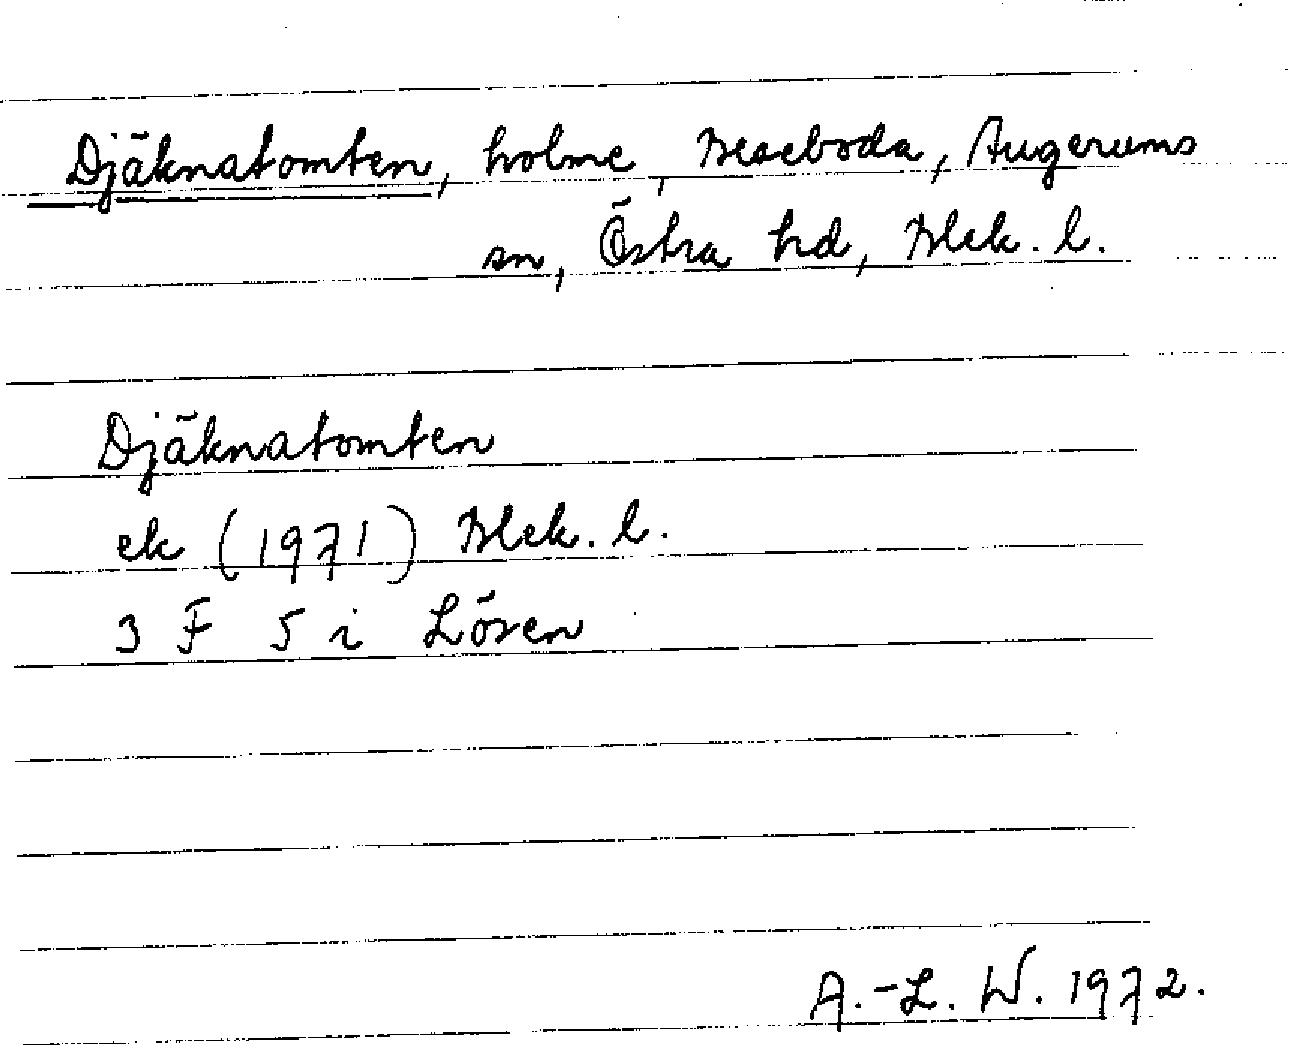 Djäknatomten, holme, Breseboda, Augerums
sn, Östra hd, Blek. l.
Djäknatomten
ek (1971) Blek. l.
3 F 5 i Löven
A.-L. W. 1972.